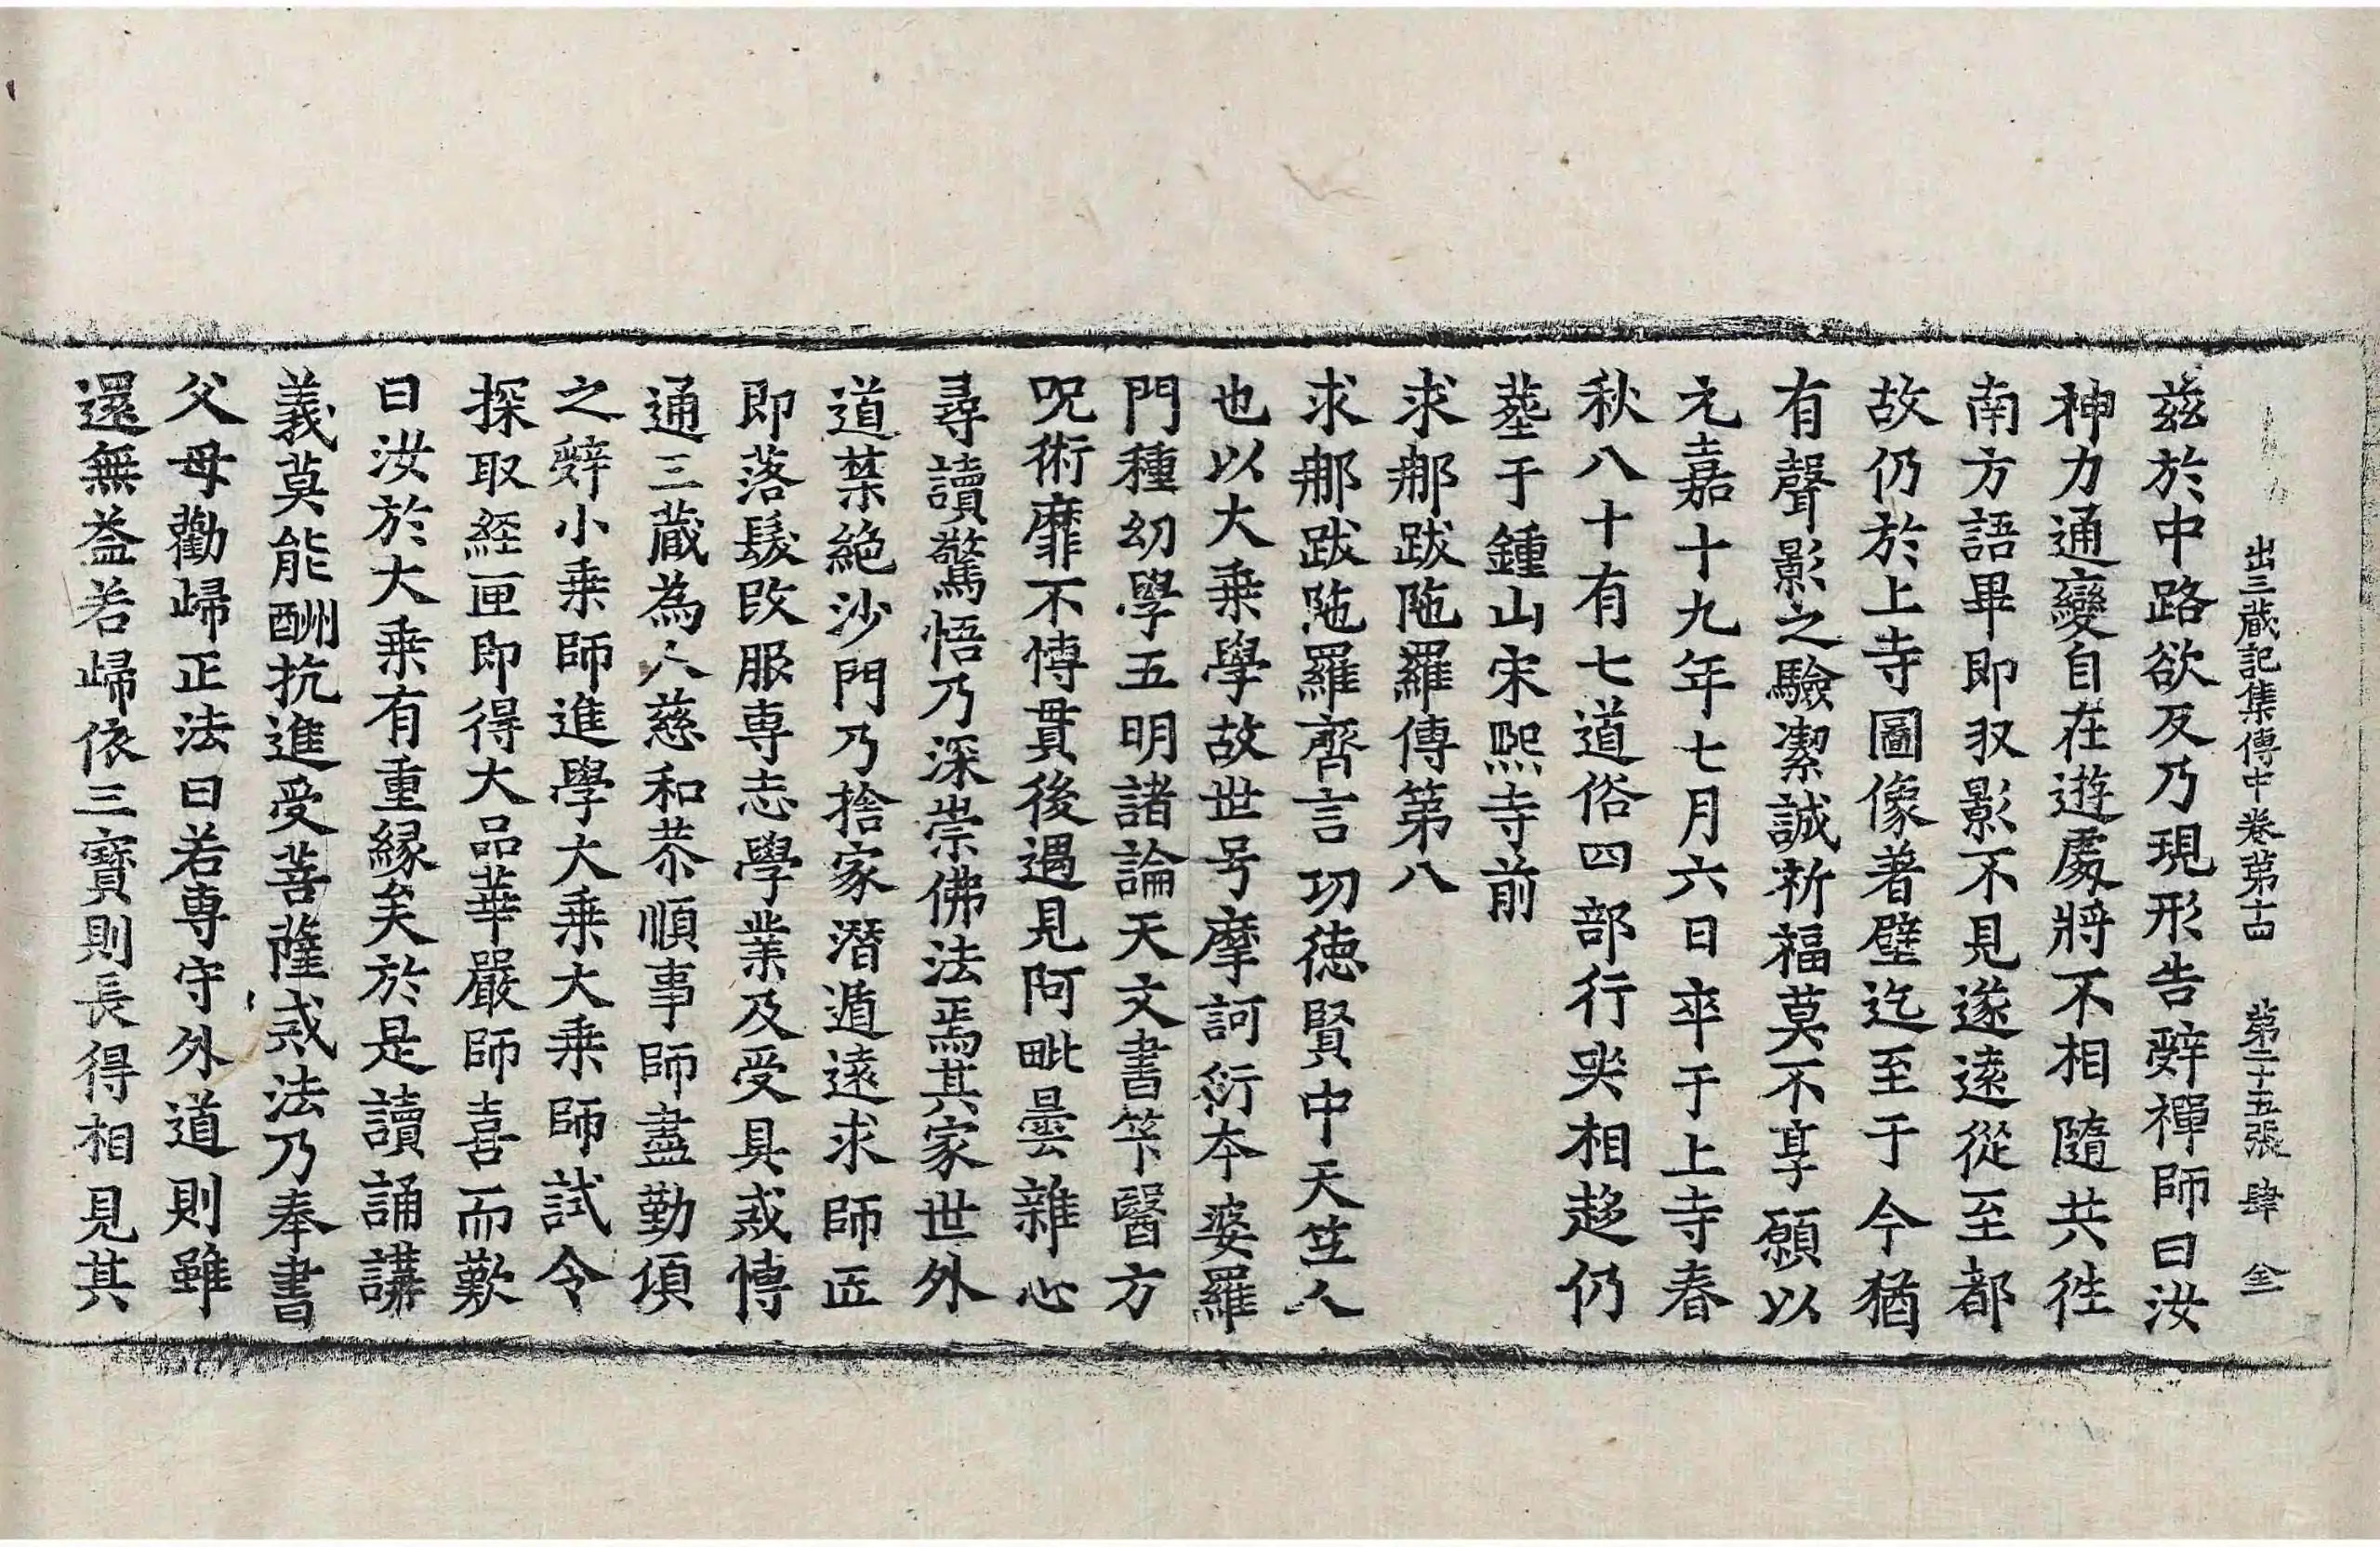 出三藏記集傳中卷第十四 第二十五張 肆 仝
茲於中路欲反乃現形告辤禪師曰汝
神力通變自在遊處將不相隨共徃
南方語畢即収影不見遂遠從至都
故仍於上寺圖像著璧迄至于今猶
有聲影之驗潔誠祈福莫不享願以
元嘉十九年七月六日卒于上寺春
秋八十有七道俗四部行哭相趍仍
塟于鍾山宋熙寺前
求那跋陁羅傳第八
求那跋陁羅齊言功德賢中天笁人
也以大乗學故世号摩訶衍本婆羅
門種幼學五明諸論天文書筭醫方
呪術靡不愽貫後遇見阿毗曇雜心
尋讀驚悟乃深崇佛法焉其家世外
道禁絶沙門乃捨家潛遁遠求師匠
即落髮改服專志學業及受具戒愽
通三藏為人慈和恭順事師盡勤項
之辤小乗師進學大乗大乗師試令
探取經匣即得大品華嚴師喜而歎
曰汝於大乗有重縁矣於是讀誦講
義莫能酬抗進受菩薩戒法乃奉書
父母勸歸正法曰若專守外道則雖
還無益若歸依三寶則長得相見其